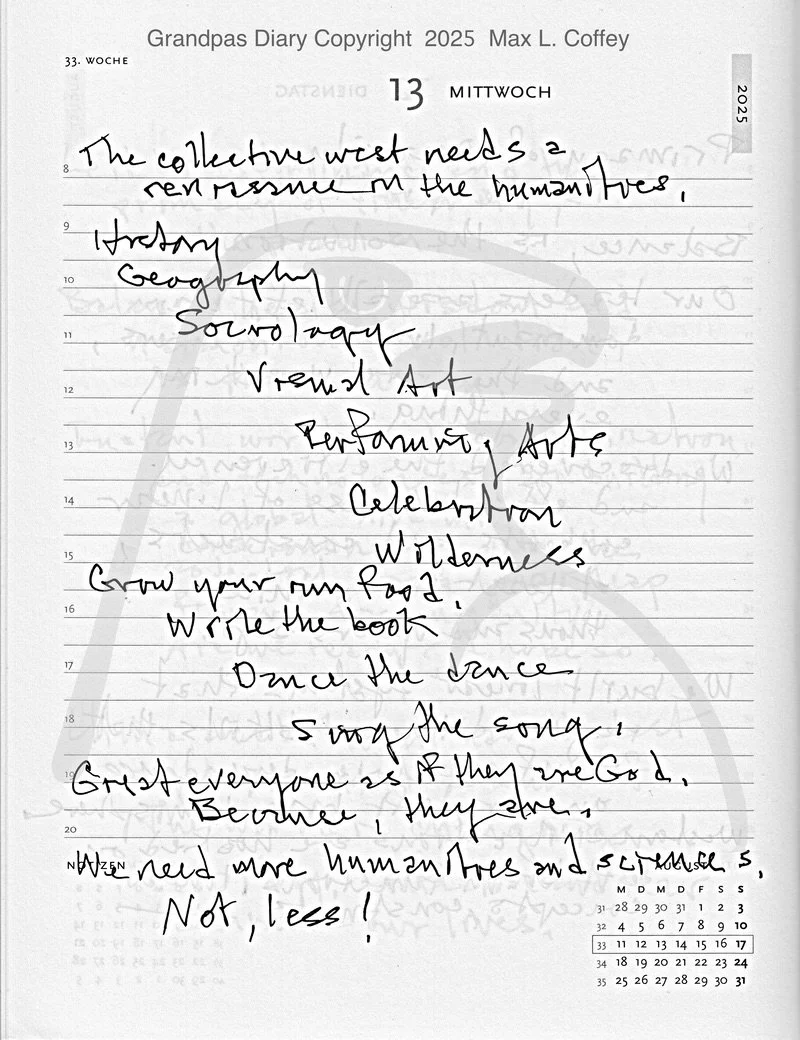 Grandpas Diary Copyright 2025 Max L. Coffey
33. WOCHE
13 MITTWOCH
2025
8 The collective west needs a
renissance in the humanities.
9 History
10 Geography
11 Sociology
12 Visual Art
13 Performing Arts
14 Celebration
Wilderness
15 Grow your own food.
16 Write the book
17 Dance the dance
18 Sing the song.
19 Great everyone as if they are God.
Because, they are.
20
NOTIZEN
We need more humanities and sciences.
Not, less!
AUGUST
M D M D F S S
31 28 29 30 31 1 2 3
32 4 5 6 7 8 9 10
33 11 12 13 14 15 16 17
34 18 19 20 21 22 23 24
35 25 26 27 28 29 30 31